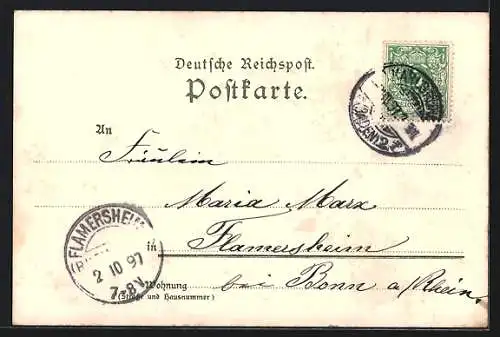 Deutsche Reichspost.
Postkarte.
An
Fräulein
Maria Marx
in Flamersheim
Wohnung bei Bonn a/Rhein.
(Straße und Hausnummer)
FLAMERSHEIM
2 10 97
7-8V.